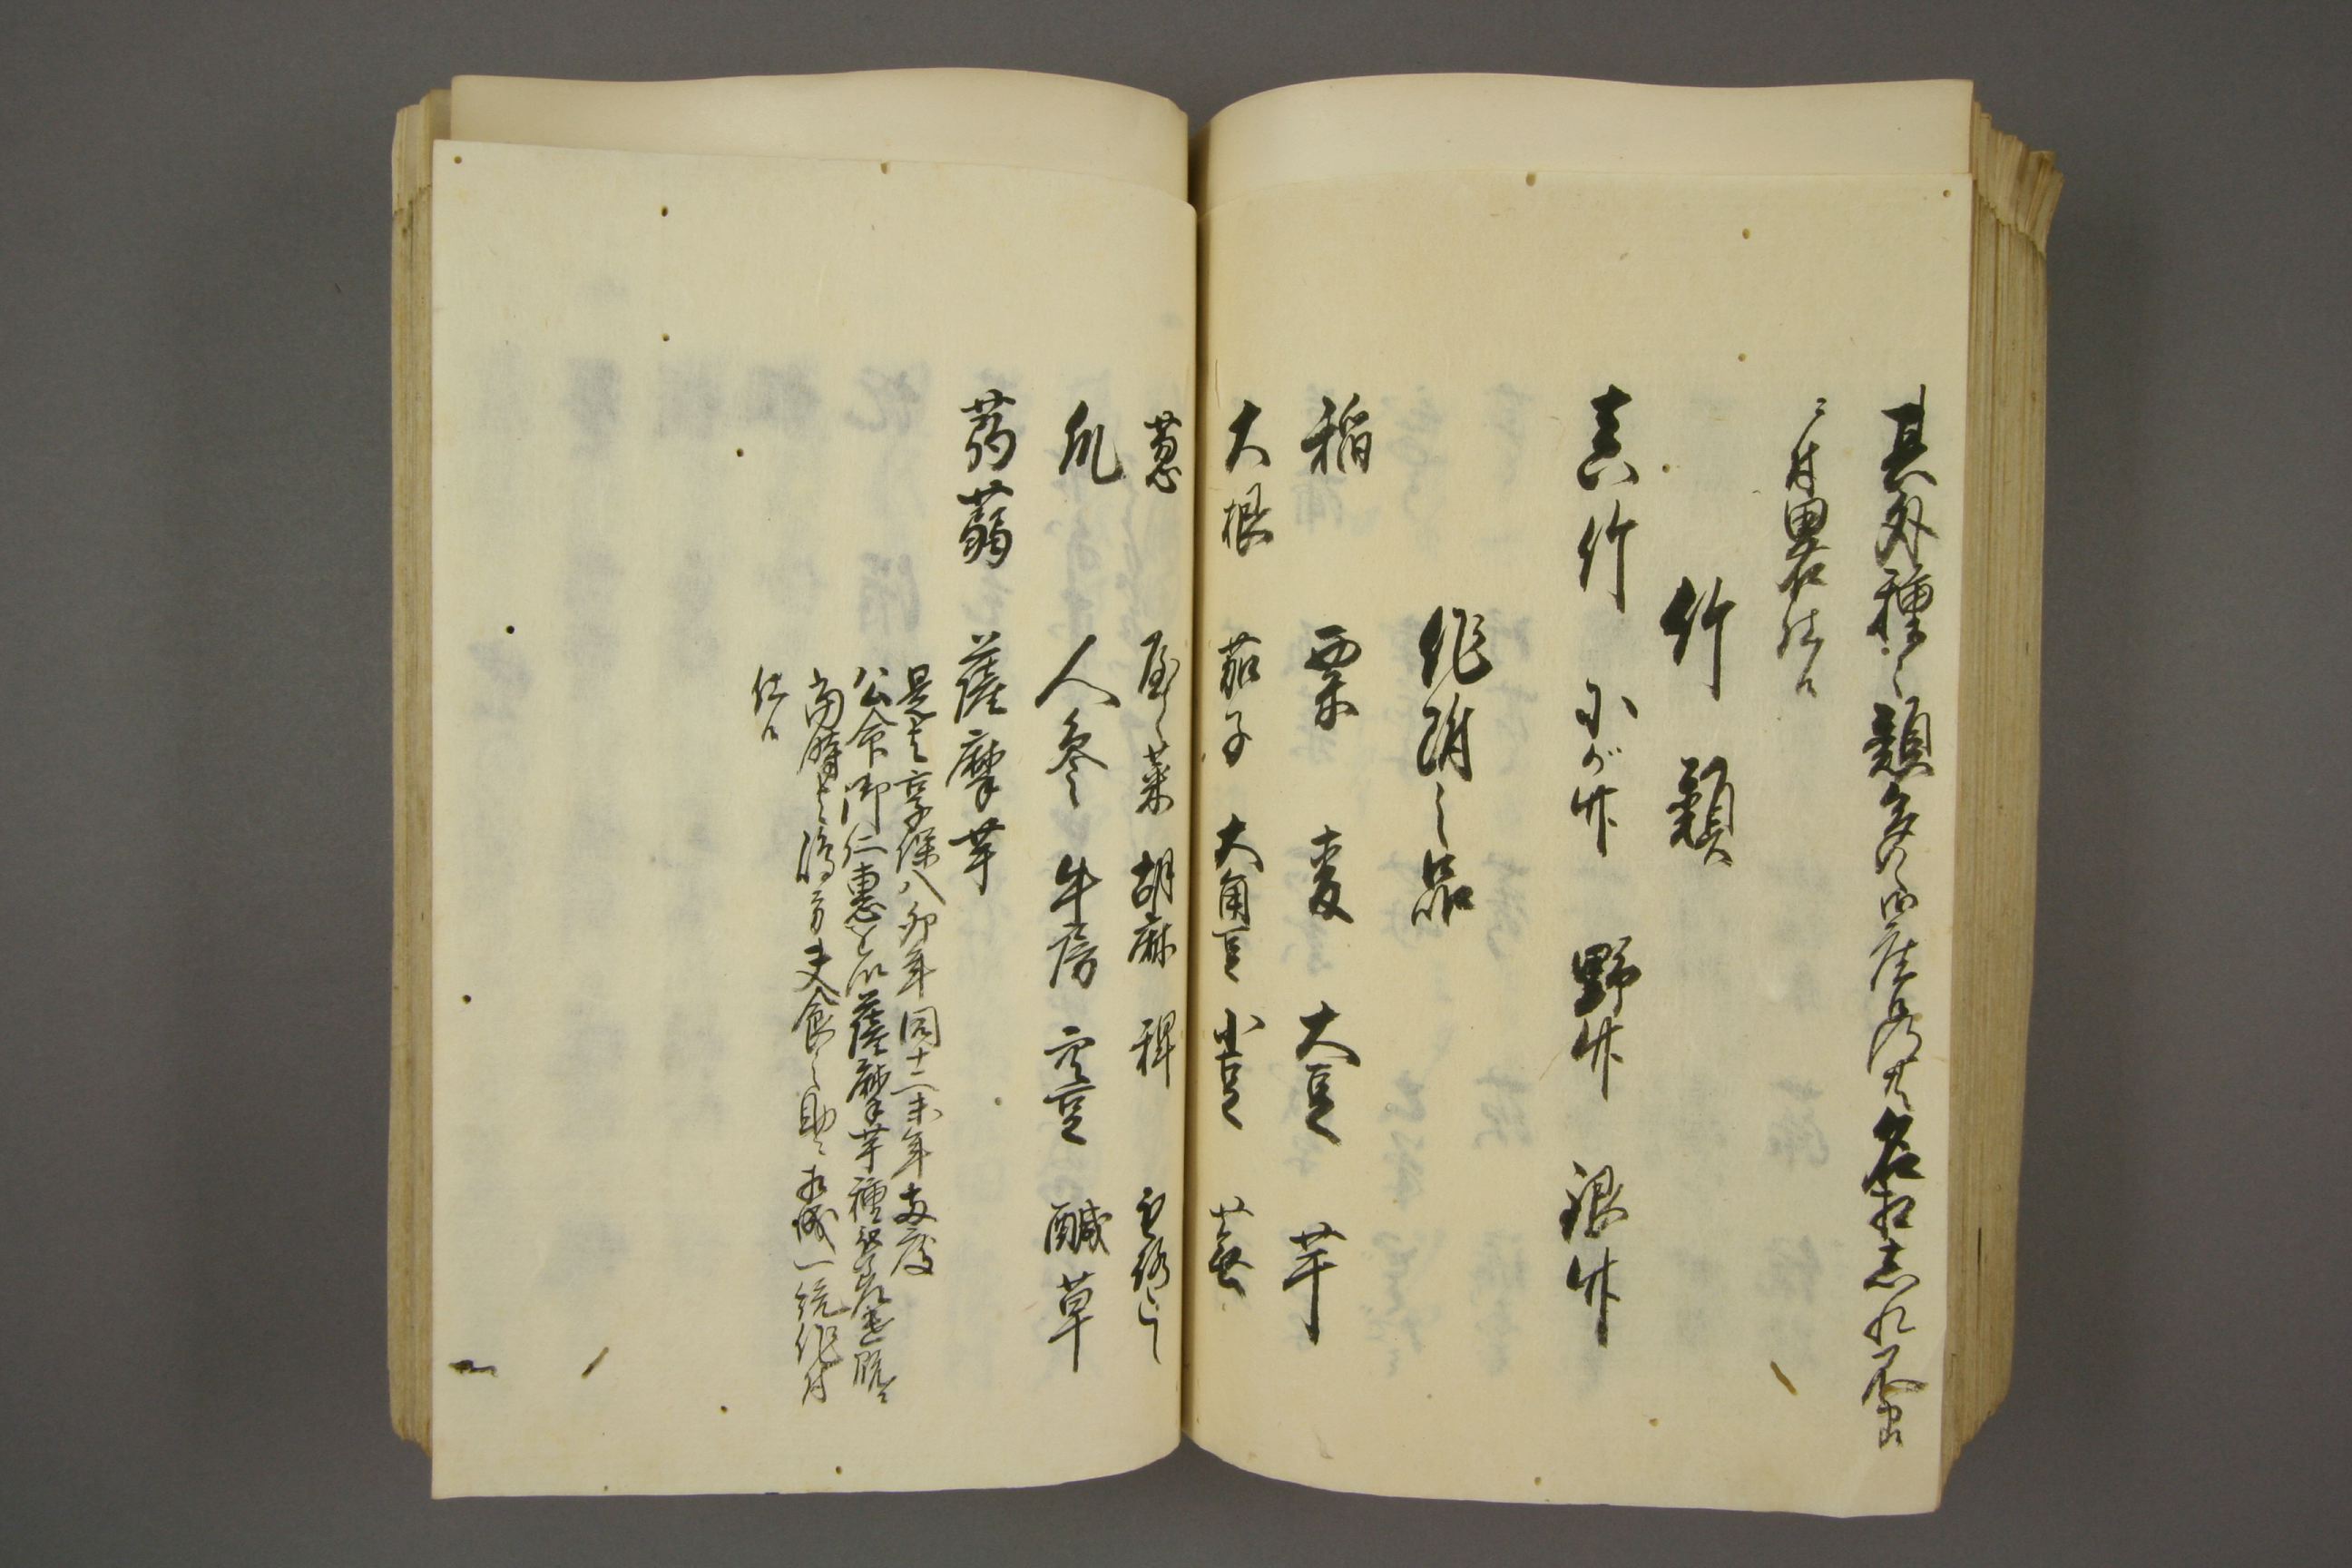 其外種々之類多ク御座候得共名相志れ不申
ニ付略仕候
竹類
真竹 にが竹 野竹 銀竹
作附之品
稲 粟 麦 大豆 芋
大根 茄子 大角豆 小豆 蕪
葱 菜 胡麻 稗
瓜 人参 牛房 空豆 醎草
蒟蒻 薩摩芋
是者享保八卯年同十二未年両度
公命御仁恵を以薩摩芋種
当時者嶋方夫食之助ニ相成一統作付
仕候